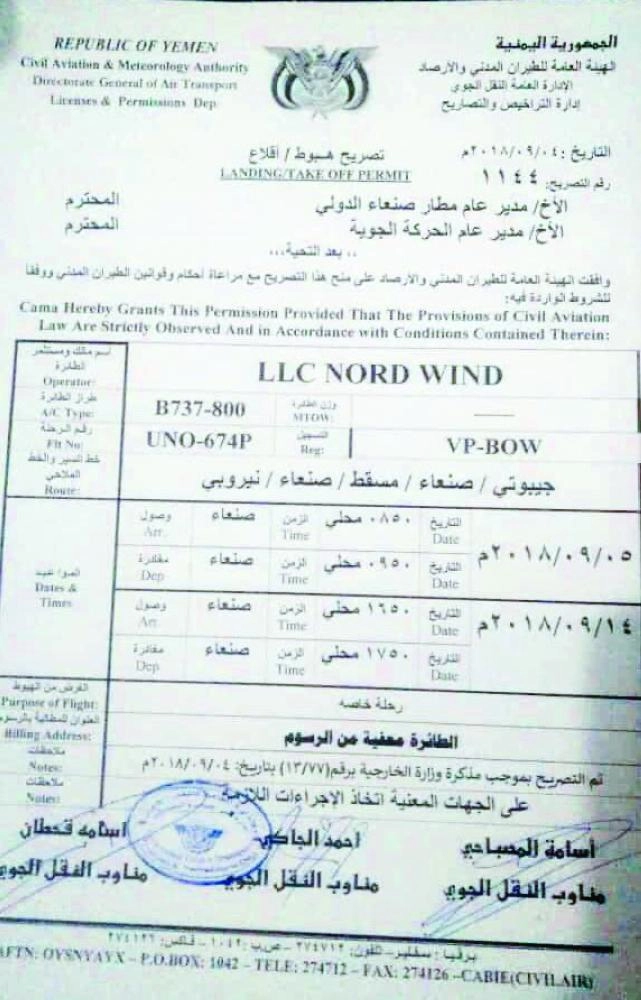 REPUBLIC OF YEMEN
Civil Aviation & Meteorology Authority
Directorate General of Air Transport
Licenses & Permissions Dep
الجمهورية اليمنية
الهيئة العامة للطيران المدني والارصاد
الإدارة العامة النقل الجوي
إدارة التراخيص والتصاريح
التاريخ : ٢٠١٨/٠٩/٠٤م
تصريح هبوط / اقلاع
LANDING/TAKE OFF PERMIT
رقم التصريح: ١١٤٤
الأخ/ مدير عام مطار صنعاء الدولي المحترم
الأخ/ مدير عام الحركة الجوية المحترم
.. بعد التحية،،،
وافقت الهيئة العامة للطيران المدني والارصاد على منح هذا التصريح مع مراعاة أحكام وقوانين الطيران المدني ووفقا
للشروط الواردة فيه:
Cama Hereby Grants This Permission Provided That The Provisions of Civil Aviation
Law Are Strictly Observed And in Accordance with Conditions Contained Therein:
اسم مالك ومستثمر
الطائرة
Operator:
LLC NORD WIND
طراز الطائرة
A/C Type:
B737-800
وزن الطائرة
MTOW:
رقم الرحلة
Flt No:
UNO-674P
التسجيل
Reg:
VP-BOW
خط السير والخط
الملاحي
Route:
جيبوتي / صنعاء / مسقط / صنعاء / نيروبي
المواعيد
Dates &
Times
وصول
Arr.
صنعاء
الزمن
Time
٠٨٥٠ محلي
التاريخ
Date
٢٠١٨/٠٩/٠٥م
مغادرة
Dep
صنعاء
الزمن
Time
٠٩٥٠ محلي
التاريخ
Date
وصول
Arr.
صنعاء
الزمن
Time
١٦٥٠ محلي
التاريخ
Date
٢٠١٨/٠٩/١٤م
مغادرة
Dep
صنعاء
الزمن
Time
١٧٥٠ محلي
التاريخ
Date
الغرض من الهبوط
Purpose of Flight:
رحلة خاصه
العنوان للمطالبة بالرسوم
Billing Address:
الطائرة معفية من الرسوم
ملاحظات
Notes:
تم التصريح بموجب مذكرة وزارة الخارجية برقم(١٣/٧٧) بتاريخ: ٢٠١٨/٠٩/٠٤م
ملاحظات
Notes:
على الجهات المعنية اتخاذ الإجراءات اللازمة
أسامة المصباحي
احمد الجاكي
اسامه قحطان
مناوب النقل الجوي
مناوب النقل الجوي
مناوب النقل الجوي
برقيا : سفلير - تلفون: ٢٧٤٧١٢ - ص.ب: ١٠٤٢ - فاكس: ٢٧٤١٢٦
AFTN: OYSNYAYX – P.O.BOX: 1042 – TELE: 274712 – FAX: 274126 –CABIE(CIVILAIR)